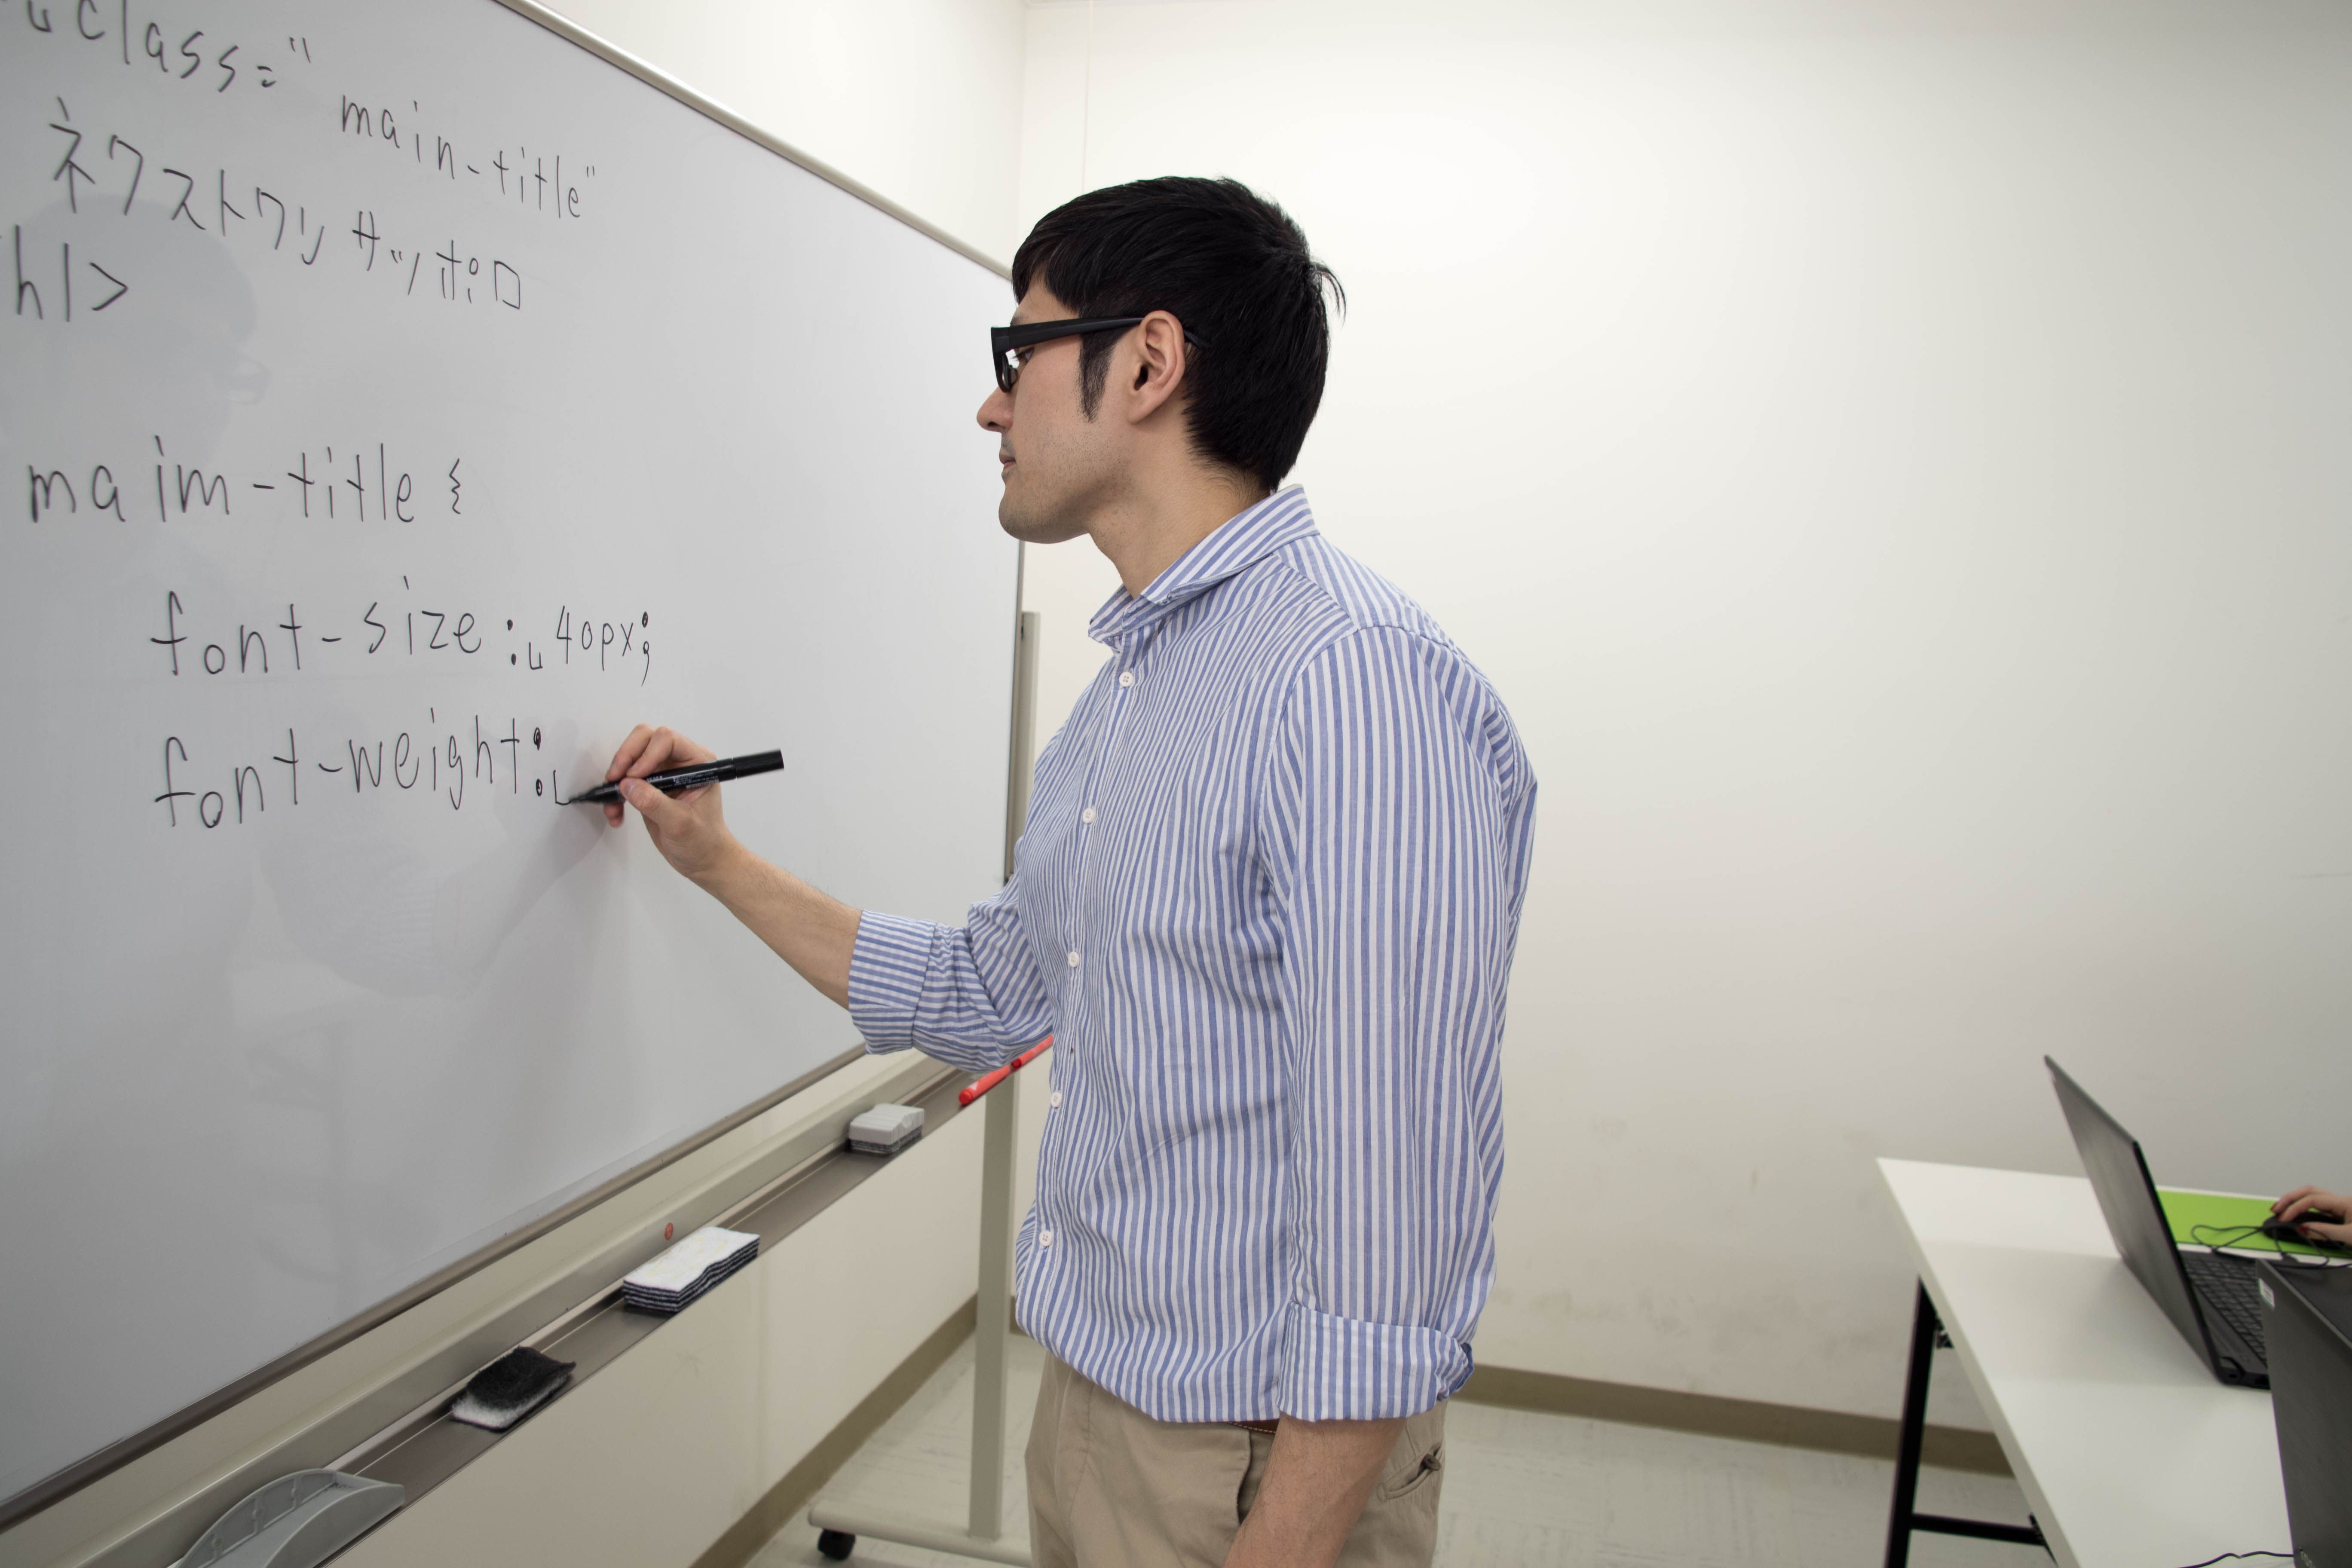 ␣class="main-title"
ネクストワリサッポロ
h1>
maim-title {
font-size:␣40px;
font-weight:␣